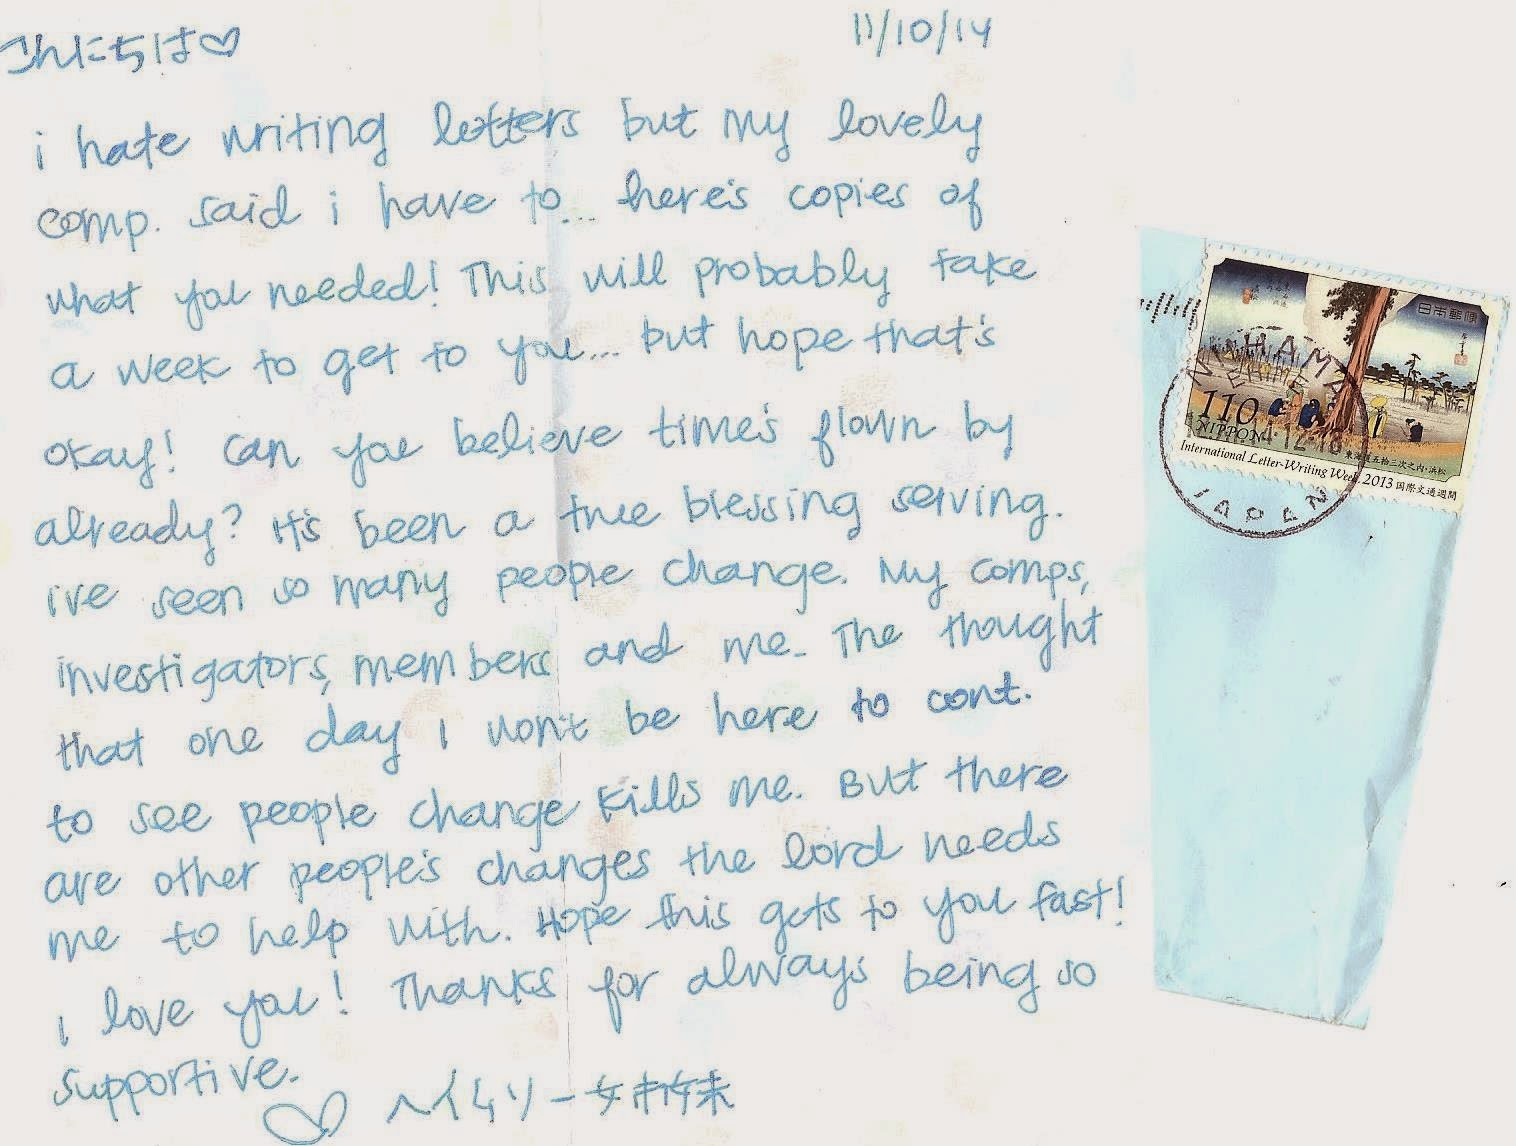 こんにちは♡
11/10/14
i hate writing letters but my lovely
comp. said i have to... here's copies of
what you needed! This will probably take
a week to get to you... but hope that's
okay! Can you believe time's flown by
already? It's been a true blessing serving.
i've seen so many people change. My comps,
investigators, members and me. The thought
that one day I won't be here to cont.
to see people change kills me. But there
are other people's changes the lord needs
me to help with. Hope this gets to you fast!
I love you! Thanks for always being so
supportive.
♡ ヘイムリー姉妹
日本郵便
110
NIPPON
東海道五拾三次之内・浜松
International Letter-Writing Week, 2013 国際文通週間
NIIHAMA
EHIME
JAPAN